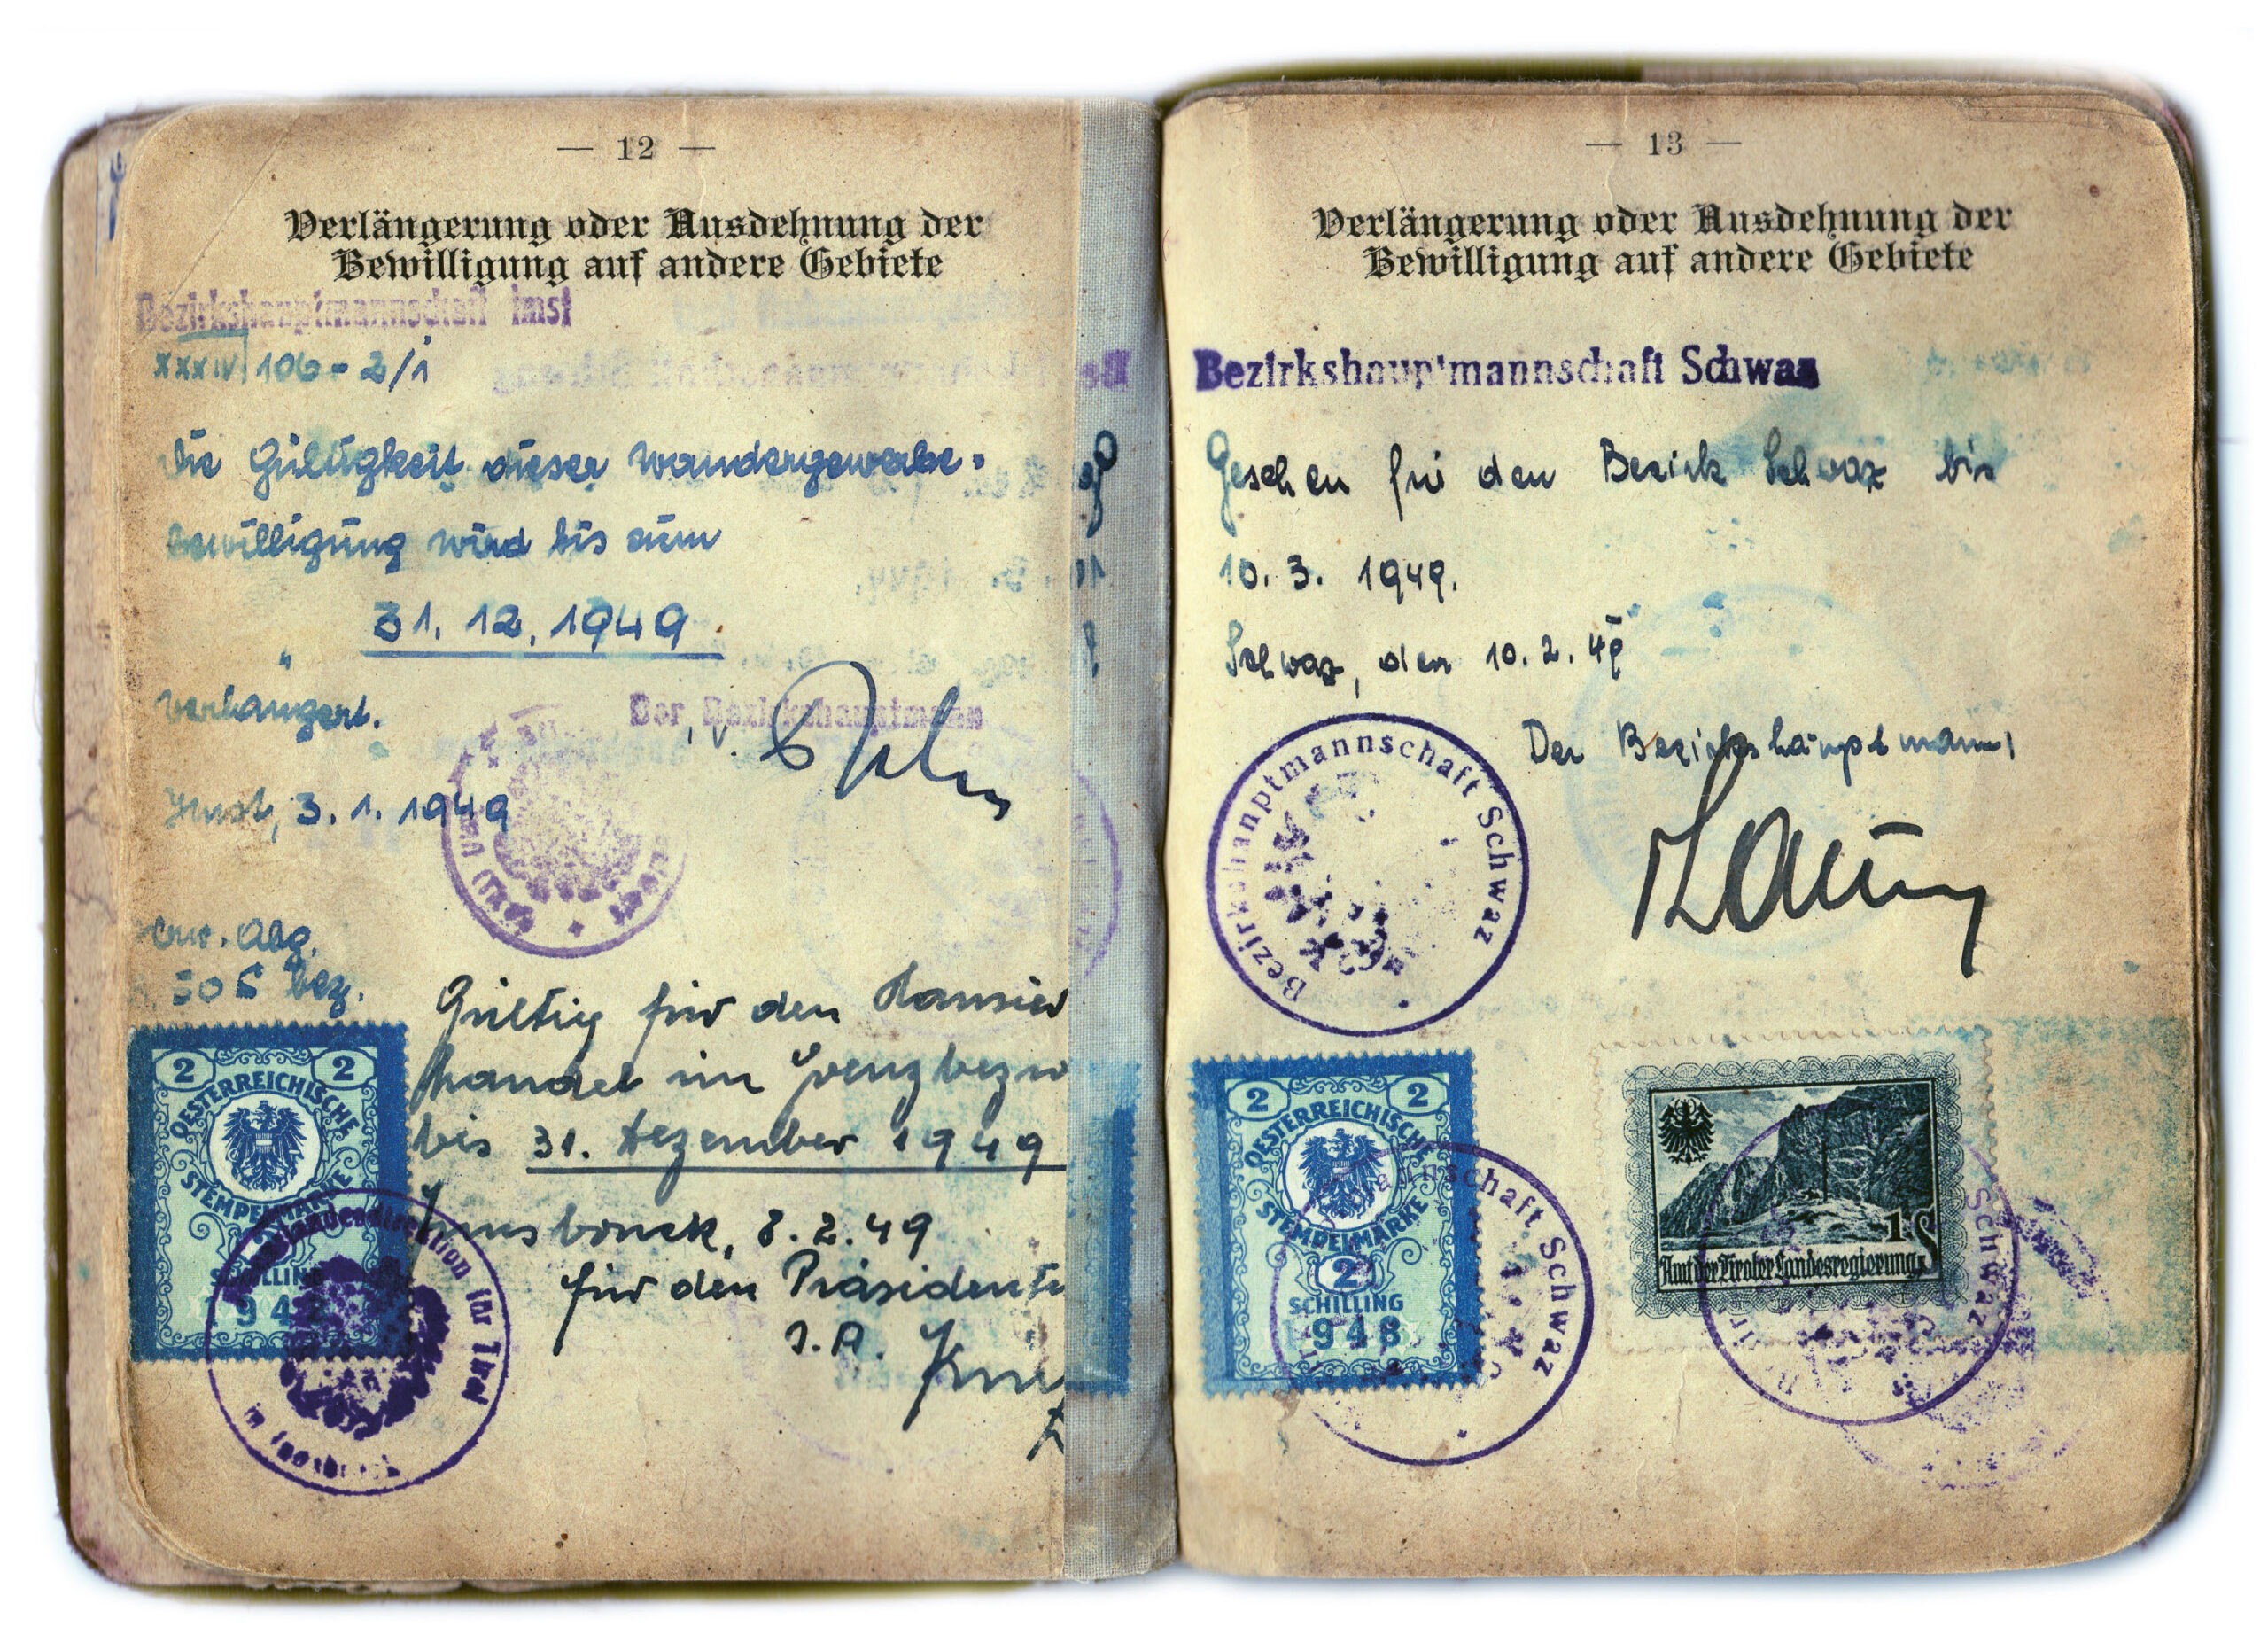 — 12 —
Verlängerung oder Ausdehnung der
Bewilligung auf andere Gebiete
Bezirkshauptmannschaft Imst
XXXIV 106-2/1
Die Gültigkeit dieser Wandergewerbe-
bewilligung wird bis zum
31. 12. 1949
verlängert.
Der Bezirkshauptmann
Imst, 3. 1. 1949
50 S bez.
Gültig für den Hausier
handel im Grenzbezir
bis 31. Dezember 1949
Innsbruck, 8. 2. 49
für den Präsidente
I. A.
2 2
OESTERREICHISCHE
STEMPELMARKE
SCHILLING
für Tirol
— 13 —
Verlängerung oder Ausdehnung der
Bewilligung auf andere Gebiete
Bezirkshauptmannschaft Schwaz
Gesehen für den Bezirk Schwaz bis
10. 3. 1949.
Schwaz, den 10. 2. 49
Der Bezirkshauptmann
Bezirkshauptmannschaft Schwaz
2 2
OESTERREICHISCHE
STEMPELMARKE
2
SCHILLING
1948
schaft Schwaz
1 S
Amt der Tiroler Landesregierung
Schwaz